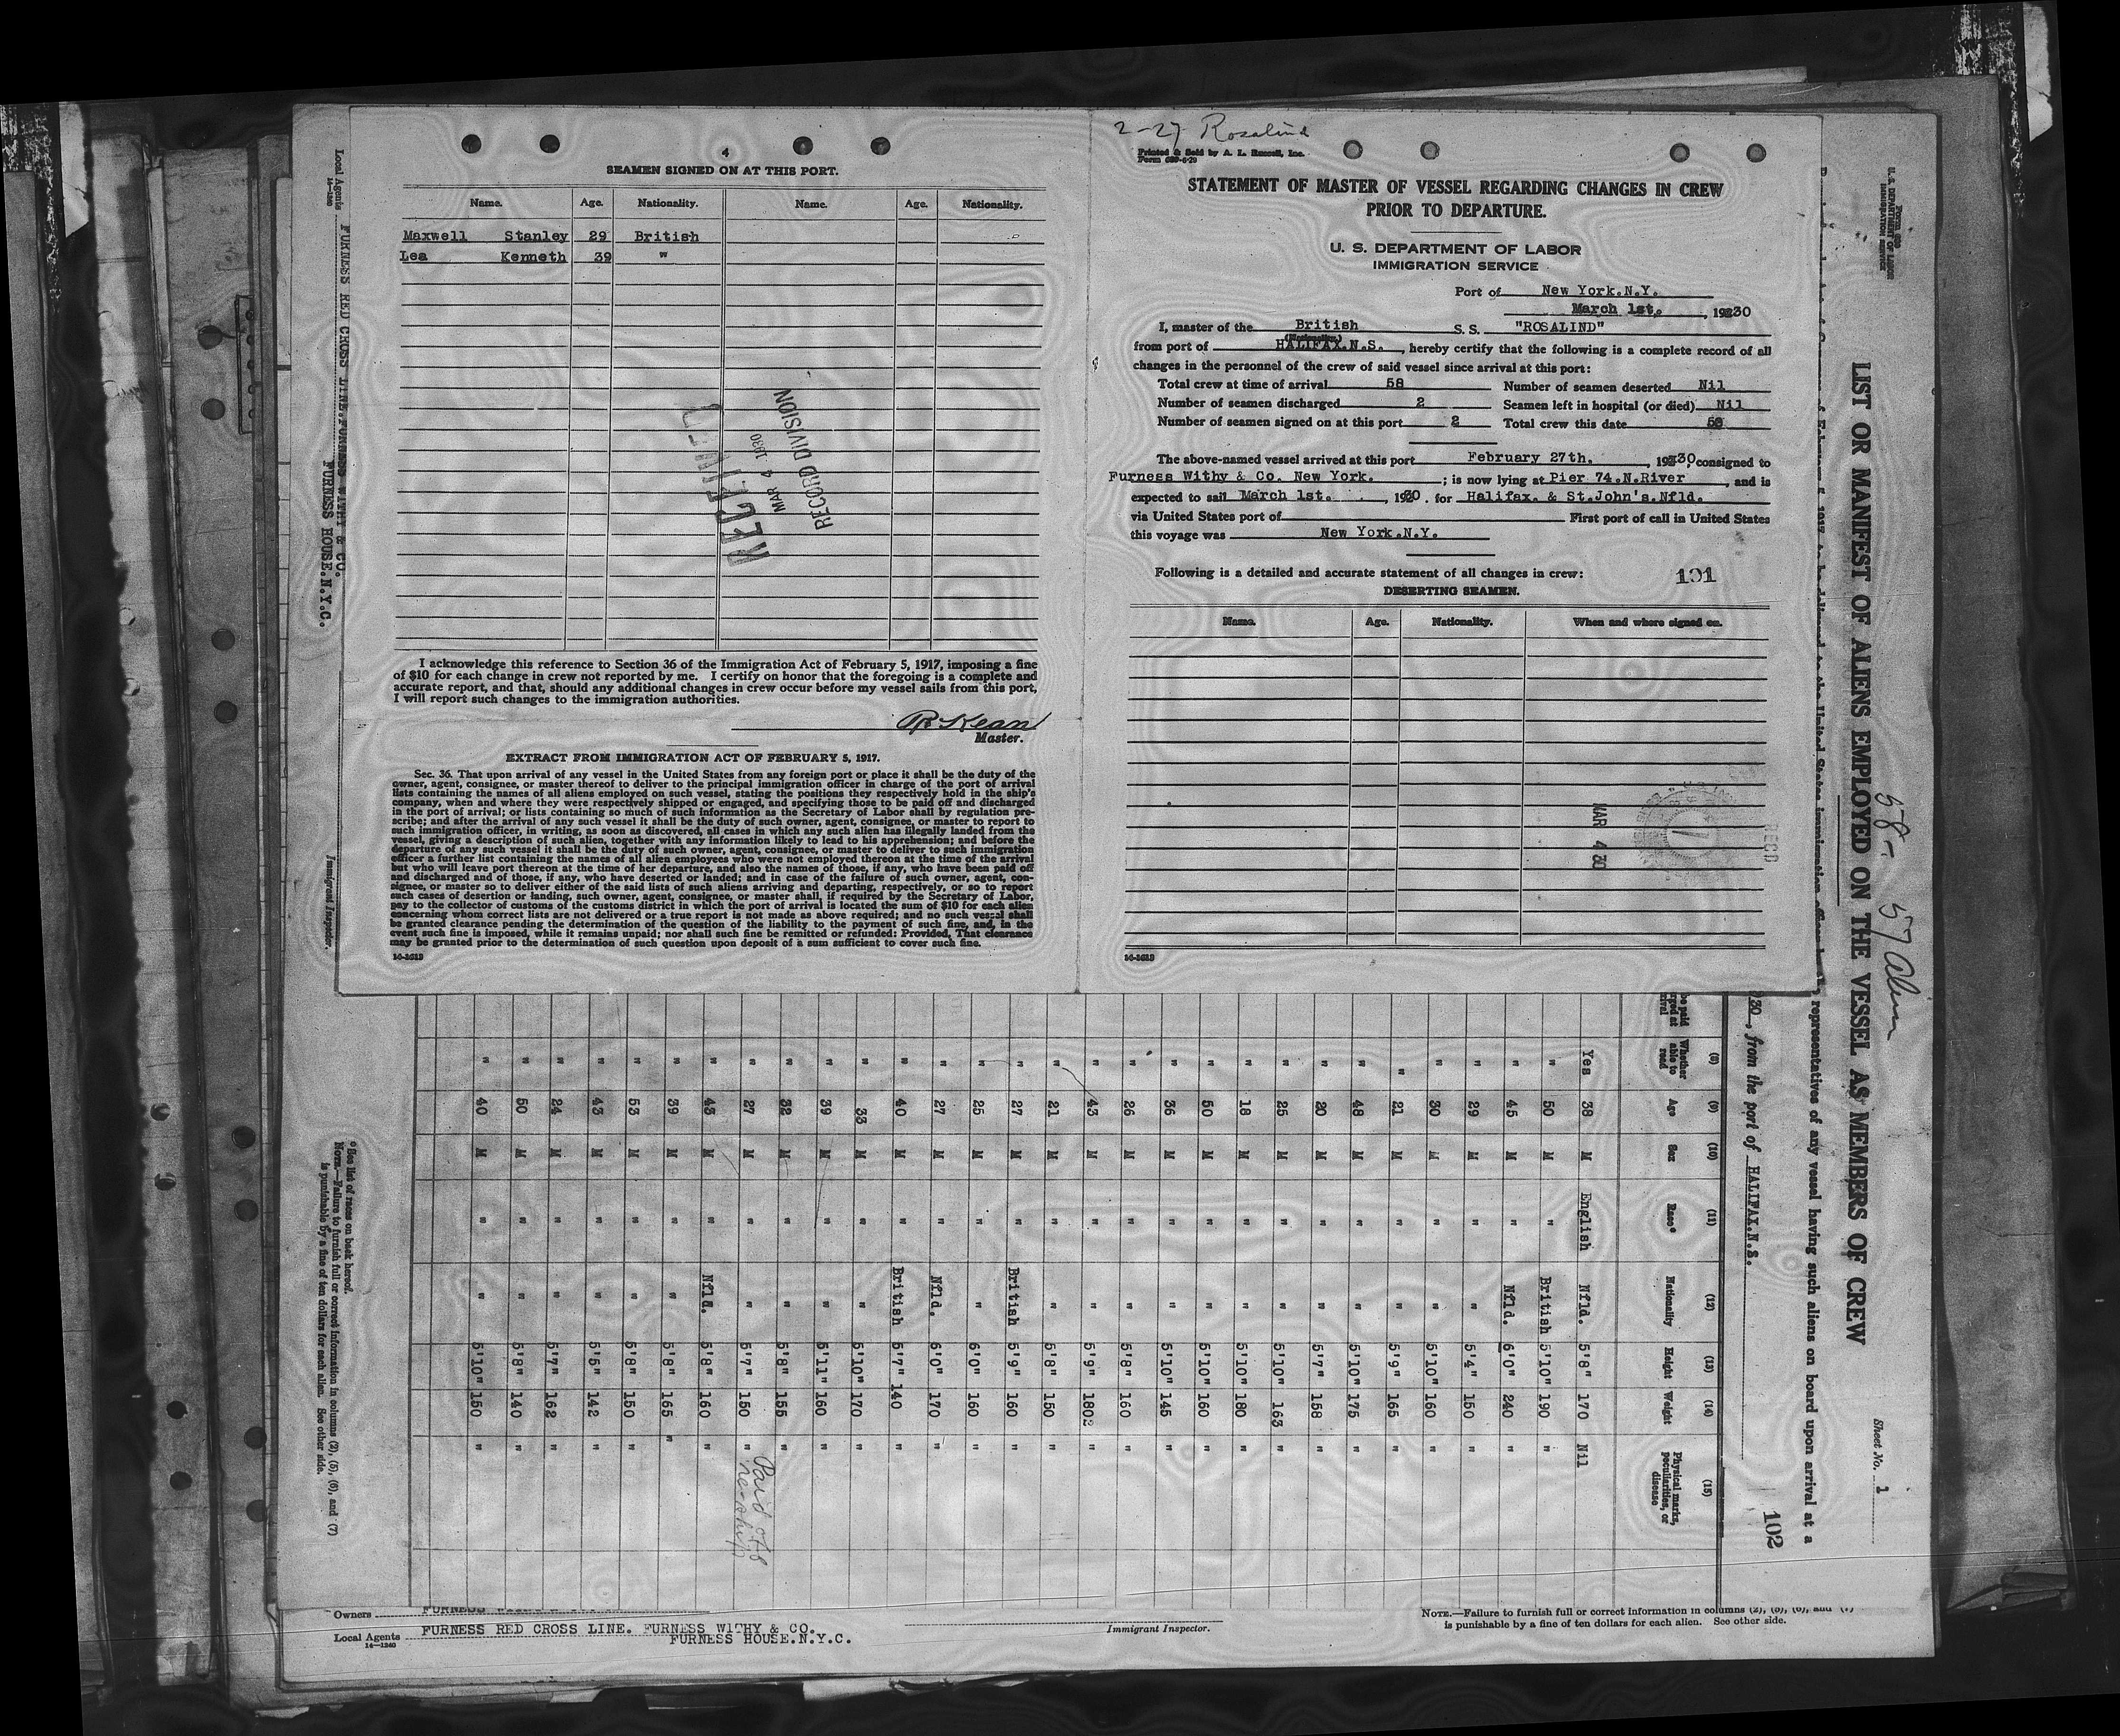 4
SEAMEN SIGNED ON AT THIS PORT.
Name. Age. Nationality. Name. Age. Nationality.
Maxwell Stanley 29 British
Lea Kenneth 39 "
RECEIVED
MAR 4 1930
RECORD DIVISION
I acknowledge this reference to Section 36 of the Immigration Act of February 5, 1917, imposing a fine
of $10 for each change in crew not reported by me. I certify on honor that the foregoing is a complete and
accurate report, and that, should any additional changes in crew occur before my vessel sails from this port,
I will report such changes to the immigration authorities.
R. Kean
Master.
EXTRACT FROM IMMIGRATION ACT OF FEBRUARY 5, 1917.
Sec. 36. That upon arrival of any vessel in the United States from any foreign port or place it shall be the duty of the
owner, agent, consignee, or master thereof to deliver to the principal immigration officer in charge of the port of arrival
lists containing the names of all aliens employed on such vessel, stating the positions they respectively hold in the ship's
company, when and where they were respectively shipped or engaged, and specifying those to be paid off and discharged
in the port of arrival; or lists containing so much of such information as the Secretary of Labor shall by regulation pre-
scribe; and after the arrival of any such vessel it shall be the duty of such owner, agent, consignee, or master to report to
such immigration officer, in writing, as soon as discovered, all cases in which any such alien has illegally landed from the
vessel, giving a description of such alien, together with any information likely to lead to his apprehension; and before the
departure of any such vessel it shall be the duty of such owner, agent, consignee, or master to deliver to such immigration
officer a further list containing the names of all alien employees who were not employed thereon at the time of the arrival
but who will leave port thereon at the time of her departure, and also the names of those, if any, who have been paid off
and discharged and of those, if any, who have deserted or landed; and in case of the failure of such owner, agent, con-
signee, or master so to deliver either of the said lists of such aliens arriving and departing, respectively, or so to report
such cases of desertion or landing, such owner, agent, consignee, or master shall, if required by the Secretary of Labor,
pay to the collector of customs of the customs district in which the port of arrival is located the sum of $10 for each alien
concerning whom correct lists are not delivered or a true report is not made as above required; and no such vessel shall
be granted clearance pending the determination of the question of the liability to the payment of such fine, and, in the
event such fine is imposed, while it remains unpaid; nor shall such fine be remitted or refunded: Provided, That clearance
may be granted prior to the determination of such question upon deposit of a sum sufficient to cover such fine.
14-1613
2-27 Rosalind
Printed & Sold by A. L. Russell, Inc.
Form 689-6-29
STATEMENT OF MASTER OF VESSEL REGARDING CHANGES IN CREW
PRIOR TO DEPARTURE.
U. S. DEPARTMENT OF LABOR
IMMIGRATION SERVICE
Port of New York.N.Y.
March 1st. , 1930
I, master of the British S. S. "ROSALIND"
(Nationality.)
from port of HALIFAX.N.S. , hereby certify that the following is a complete record of all
changes in the personnel of the crew of said vessel since arrival at this port:
Total crew at time of arrival 58 Number of seamen deserted Nil
Number of seamen discharged 2 Seamen left in hospital (or died) Nil
Number of seamen signed on at this port 2 Total crew this date 58
The above-named vessel arrived at this port February 27th. , 1930, consigned to
Furness Withy & Co. New York. ; is now lying at Pier 74.N.River , and is
expected to sail March 1st. , 1930 , for Halifax. & St.John's.Nfld.
via United States port of First port of call in United States
this voyage was New York.N.Y.
Following is a detailed and accurate statement of all changes in crew: 101
DESERTING SEAMEN.
Name. Age. Nationality. When and where signed on.
MAR 4 30
REC'D
14-1613
U. S. DEPARTMENT OF LABOR
IMMIGRATION SERVICE
Sheet No. 1
58 - 57 alien
LIST OR MANIFEST OF ALIENS EMPLOYED ON THE VESSEL AS MEMBERS OF CREW
representatives of any vessel having such aliens on board upon arrival at a
30 , from the port of HALIFAX.N.S.
102
(8) (9) (10) (11) (12) (13) (14) (15)
Whether able to read Age Sex Race* Nationality Height Weight Physical marks, peculiarities, or disease
Yes 38 M English Nfld. 5'8" 170 Nil
" 50 M " British 5'10" 190 "
" 45 M " Nfld. 6'0" 240 "
" 29 M " " 5'4" 150 "
" 30 M " " 5'10" 160 "
" 21 M " " 5'9" 165 "
" 48 M " " 5'10" 175 "
" 20 M " " 5'7" 158 "
" 25 M " " 5'10" 163 "
" 18 M " " 5'10" 180 "
" 50 M " " 5'10" 160 "
" 36 M " " 5'10" 145 "
" 26 M " " 5'8" 160 "
" 43 M " " 5'9" 1802 "
" 21 M " " 5'8" 150 "
" 27 M " British 5'9" 160 "
" 25 M " " 6'0" 160 "
" 27 M " Nfld. 6'0" 170 "
" 40 M " British 5'7" 140 "
" 33 M " " 5'10" 170 "
" 39 M " " 5'11" 160 "
" 32 M " " 5'8" 155 "
" 27 M " " 5'7" 150 " Paid off & re-ship
" 43 M " Nfld. 5'8" 160 "
" 39 M " " 5'8" 165 "
" 53 M " " 5'8" 150 "
" 43 M " " 5'5" 142 "
" 24 M " " 5'7" 162 "
" 50 M " " 5'8" 140 "
" 40 M " " 5'10" 150 "
* See list of races on back hereof.
NOTE.—Failure to furnish full or correct information in columns (2), (5), (6), and (7)
is punishable by a fine of ten dollars for each alien. See other side.
Local Agents FURNESS RED CROSS LINE.FURNESS WITHY & CO.
14-1240
FURNESS HOUSE.N.Y.C.
Immigrant Inspector.
Owners FURNESS
Local Agents FURNESS RED CROSS LINE. FURNESS WITHY & CO.
14-1240
FURNESS HOUSE.N.Y.C.
Immigrant Inspector.
NOTE.—Failure to furnish full or correct information in columns (2), (5), (6), and (7)
is punishable by a fine of ten dollars for each alien. See other side.